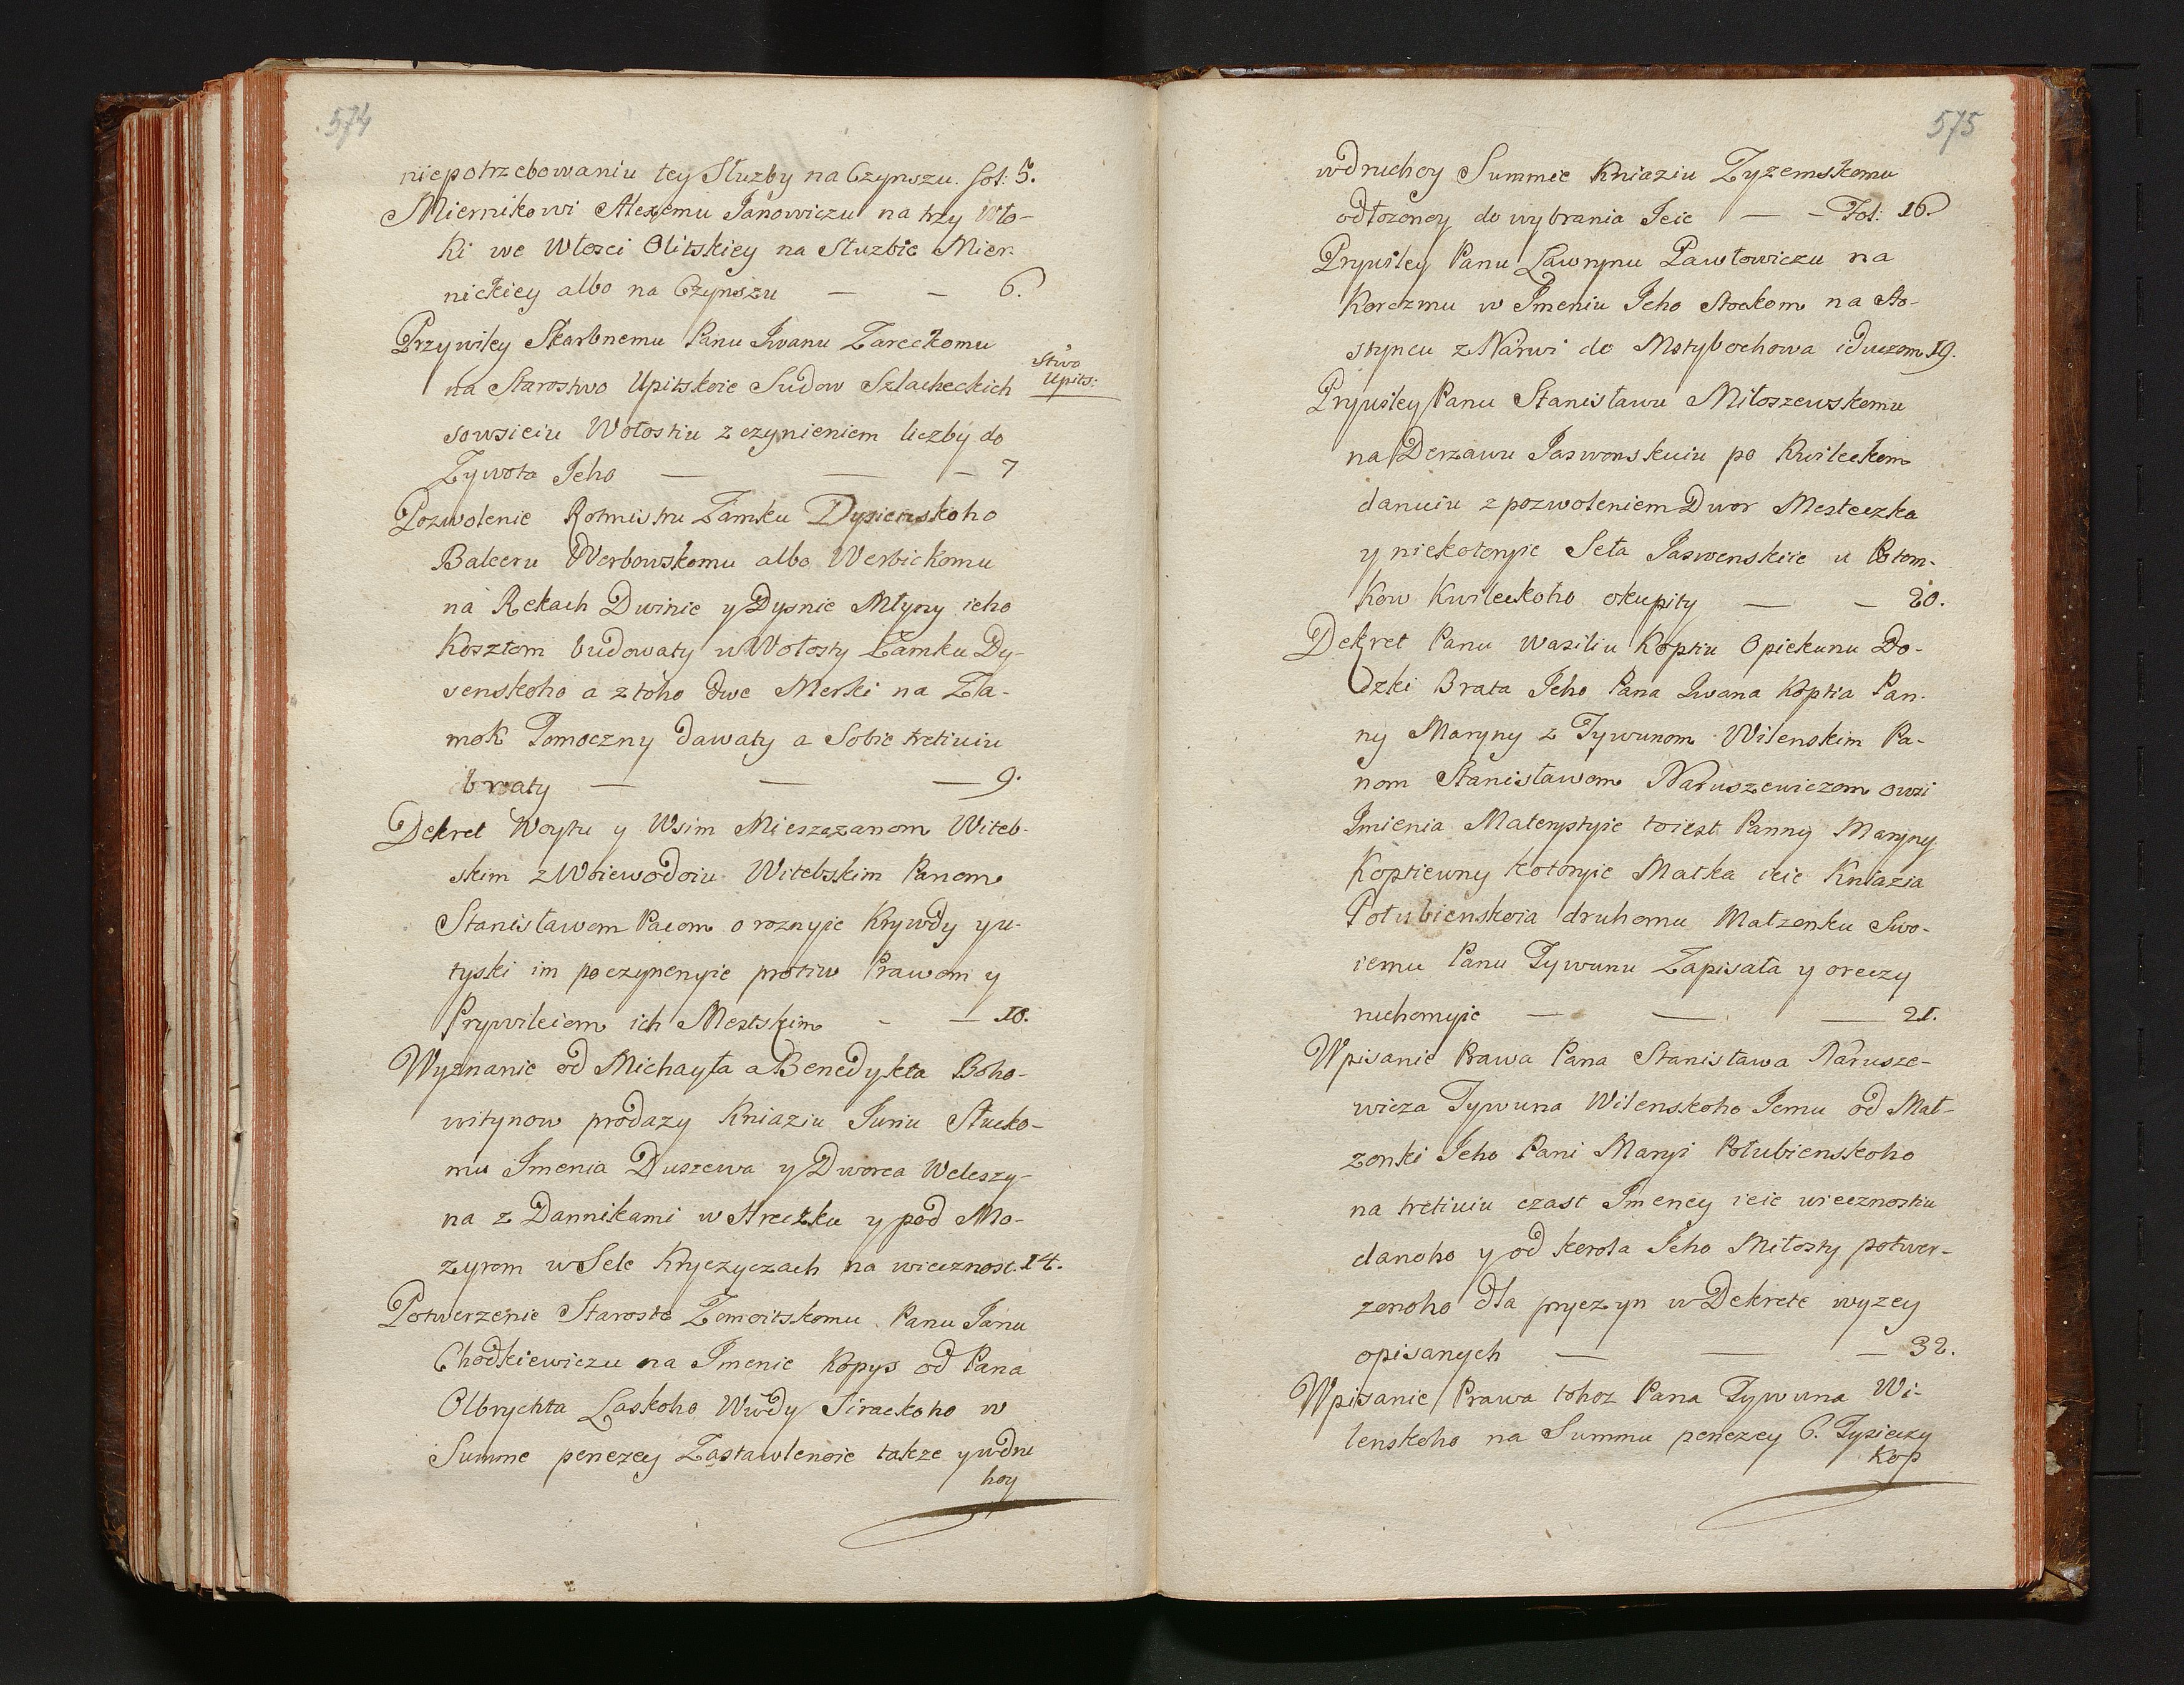 574
niepotrzebowaniu tey Służby na Czynszu. fol: 5.
Miernikowi Alexemu Janowiczu na trzy Wło-
ki we Włosci Olitskiey na Służbie Mier-
nickiey albo na Czynszu — — 6.
Przywiley Skarbnemu Panu Iwanu Zareckomu
na Starostwo Upitskoie Sudow Szlacheckich
Stwo
Upits:
sowsieiu Wołostiu z czynieniem liczby do
Zywota Jeho — — — 7
Pozwolenie Rotmistru Zamku Dysienskoho
Balceru Werbowskomu albo Werbickomu
na Rekach Dwinie y Dysnie Młyny ieho
Kosztom budowaty u Wołosty Zamku Dy-
senskoho a z toho dwe Merki na Za-
mok Pomoczny dawaty a Sobie tretiuiu
braty — — — 9.
Dekret Woytu y Wsim Mieszczanom Witeb-
skim z Woiewodoiu Witebskim Panom
Stanisławom Pacom o roznyie Krywdy y u-
tyski im poczynenyie protiw Prawom y
Prywileiem ich Mestskim - — 10.
Wyznanie od Michayła a Benedykta Boho-
witynow prodazy Kniaziu Juriu Słucko-
mu Imenia Duszewa y Dworca Weleszy-
na z Dannikami w Streczku y pod Mo-
zyrom w Sele Kryczyczach na wiecznosc. 14.
Potwerzenie Staroste Zomoitskomu Panu Janu
Chodkiewiczu na Imenie Kopys od Pana
Olbrychta Laskoho Wwdy Sirackoho w
Summe penezey Zastawlenoie takze y wdru
hoy
575
wdruhoy Summie Kniaziu Zyzemskomu
odłozoney do wybrania Ieie — — Fol: 16.
Prywiley Panu Ławrynu Pawłowiczu na
Korczmu w Imeniu Jeho Stockom na Ho-
styncu z Narwi do Motybochowa iduczom 19.
Prywiley Panu Stanisławu Miłoszewskomu
na Derzawu Jaswonskuiu po Kwileckom
danuiu z pozwoleniem Dwor Mesteczka
y niekotoryie Seła Jaswenskiie u Potom-
kow Kwileckoho okupity — — 20.
Dekret Panu Wasiliu Koptiu Opiekunu Do-
czki Brata Jeho Pana Iwana Koptia Pan-
ny Maryny z Tywunom Wilenskim Pa-
nom Stanisławom Naruszewiczom owsi
Imienia Materystyie toiest Panny Maryny
Koptiewny kotoryie Matka ieie Kniazia
Połubienskoia druhomu Małzonku Swo-
iemu Panu Tywunu Zapisała y oreczy
ruchomyie — — — 21.
Wpisanie Prawa Pana Stanisława Narusze-
wicza Tywuna Wilenskoho Jemu od Mał-
zonki Jeho Pani Maryi Połubienskoho
na tretiuiu czast Imeney ieie wiecznostiu
danoho y od Korola Jeho Miłosty potwer-
zenoho dla pryczyn w Dekrete wyzey
opisanych — — — 32.
Wpisanie Prawa tohoz Pana Tywuna Wi-
lenskoho na Summu penezey 6. Tysieczy
Kop